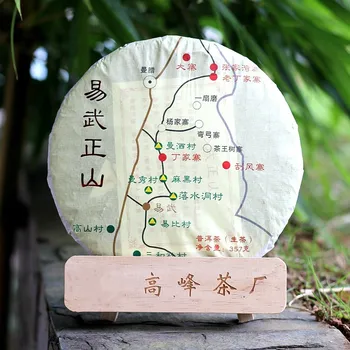 易武正山
大寨
张家湾
老丁家寨
曼腊
一扇磨
杨家寨
弯弓寨
曼洒村
茶王树寨
丁家寨
刮风寨
曼秀村
麻黑村
落水洞村
易武
高山村
易比村
普洱茶(生茶)
净含量:357克
高峰茶厂